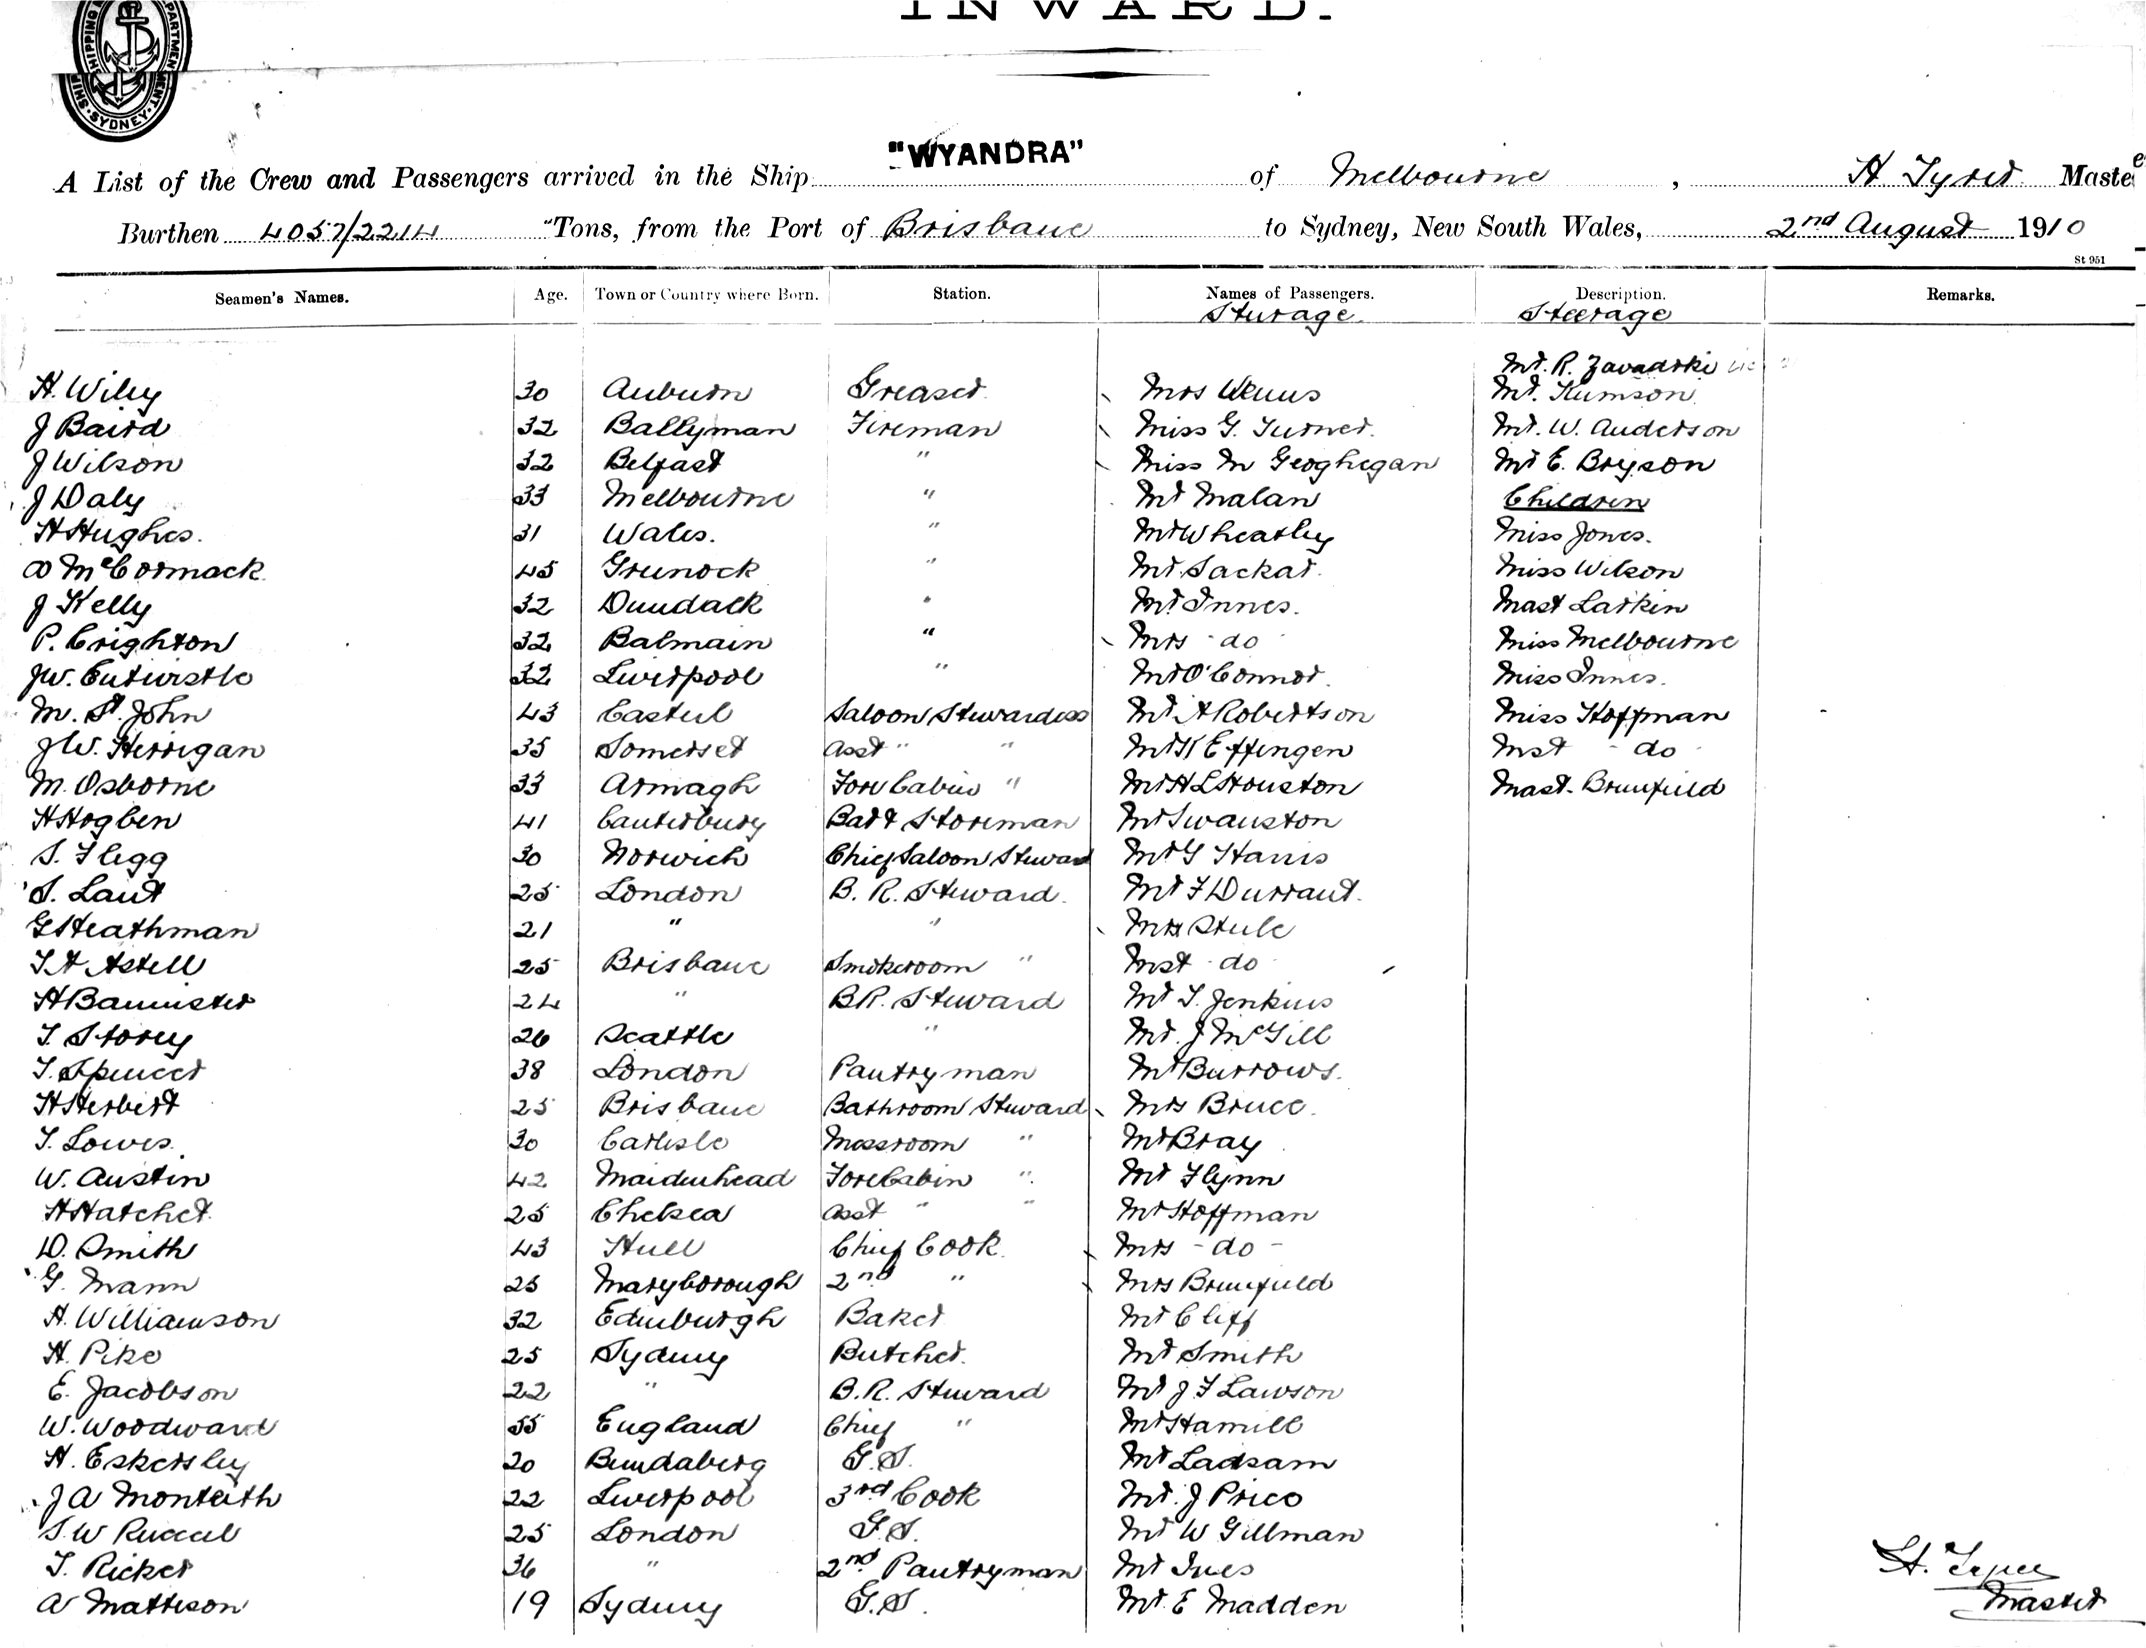 INWARD.
SHIPPING DEPARTMENT. SYDNEY.
"WYANDRA"
A List of the Crew and Passengers arrived in the Ship of Melbourne, H. Tyrer Master
Burthen 4057/2214 Tons, from the Port of Brisbane to Sydney, New South Wales, 2nd August 1910
St 951
Seamen's Names. Age. Town or Country where Born. Station. Names of Passengers. Description. Remarks.
Sturage Steerage
Mr. R. Zavadski
H. Wiley 30 Auburn Greaser Mrs Wenus Mr. Kumson
J Baird 32 Ballyman Fireman Miss G. Turner. Mr. W. Anderson
J Wilson 32 Belfast " Miss M Geoghegan Mr E. Bryson
J Daly 33 Melbourne " Mr Malan Children
H Hughes. 31 Wales. " Mr Wheatley Miss Jones.
D McCormack 45 Greenock " Mr. Sackar. Miss Wilson
J Kelly 32 Dundalk " Mr. Innes. Mast Larkin
P. Crighton 32 Balmain " Mrs - do Miss Melbourne
JW. Entwistle 32 Liverpool " Mr O'Connor. Miss Innes.
M. St. John 43 Casteel Saloon Stewardess Mr A Robertson Miss Hoffman
JW. Herrigan 35 Somerset Asst " " Mr K Effingen Mst - do
M. Osborne 33 Armagh Fore Cabin " Mr H L Houston Mast. Brumfield
H Hogben 41 Canterbury Bar & Storeman Mr Swanston
S. Flegg 30 Norwich Chief Saloon Steward Mr G Harris
S. Laut 25 London B. R. Steward. Mr F Durrant.
G Heathman 21 " " Mrs Steele
T H Astell 25 Brisbane Smokeroom " Mst - do
H Bannister 24 " B R. Steward Mr T. Jenkins
T. Storey 26 Seattle " Mr. J McGill
T. Spencer 38 London Pantryman Mr Burrows.
H Herbert 25 Brisbane Bathroom Steward Mrs Bruce.
T. Lowes. 30 Carlisle Messroom " Mr Bray
W. Austin 42 Maidenhead Fore Cabin " Mr Flynn
H Hatcher. 25 Chelsea Asst " " Mr Hoffman
D. Smith 43 Hull Chief Cook. Mrs - do -
G. Mann 25 Maryborough 2nd " Mrs Brumfield
H. Williamson 32 Edinburgh Baker Mr Cliff
H. Pike 25 Sydney Butcher. Mr Smith
E. Jacobson 22 " B. R. Steward Mr J F Lawson
W. Woodward 55 England Chief " Mr Hamill
H. Eskersley 20 Bundaberg G. S. Mr Ladsam
J A Monteith 22 Liverpool 3rd Cook Mr. J Price
S. W Russel 25 London G. S. Mr W Gillman
T. Ricker 36 " 2nd Pantryman Mr Ives
A Matteson 19 Sydney G. S. Mr. E Madden
H. Tyrer
Master